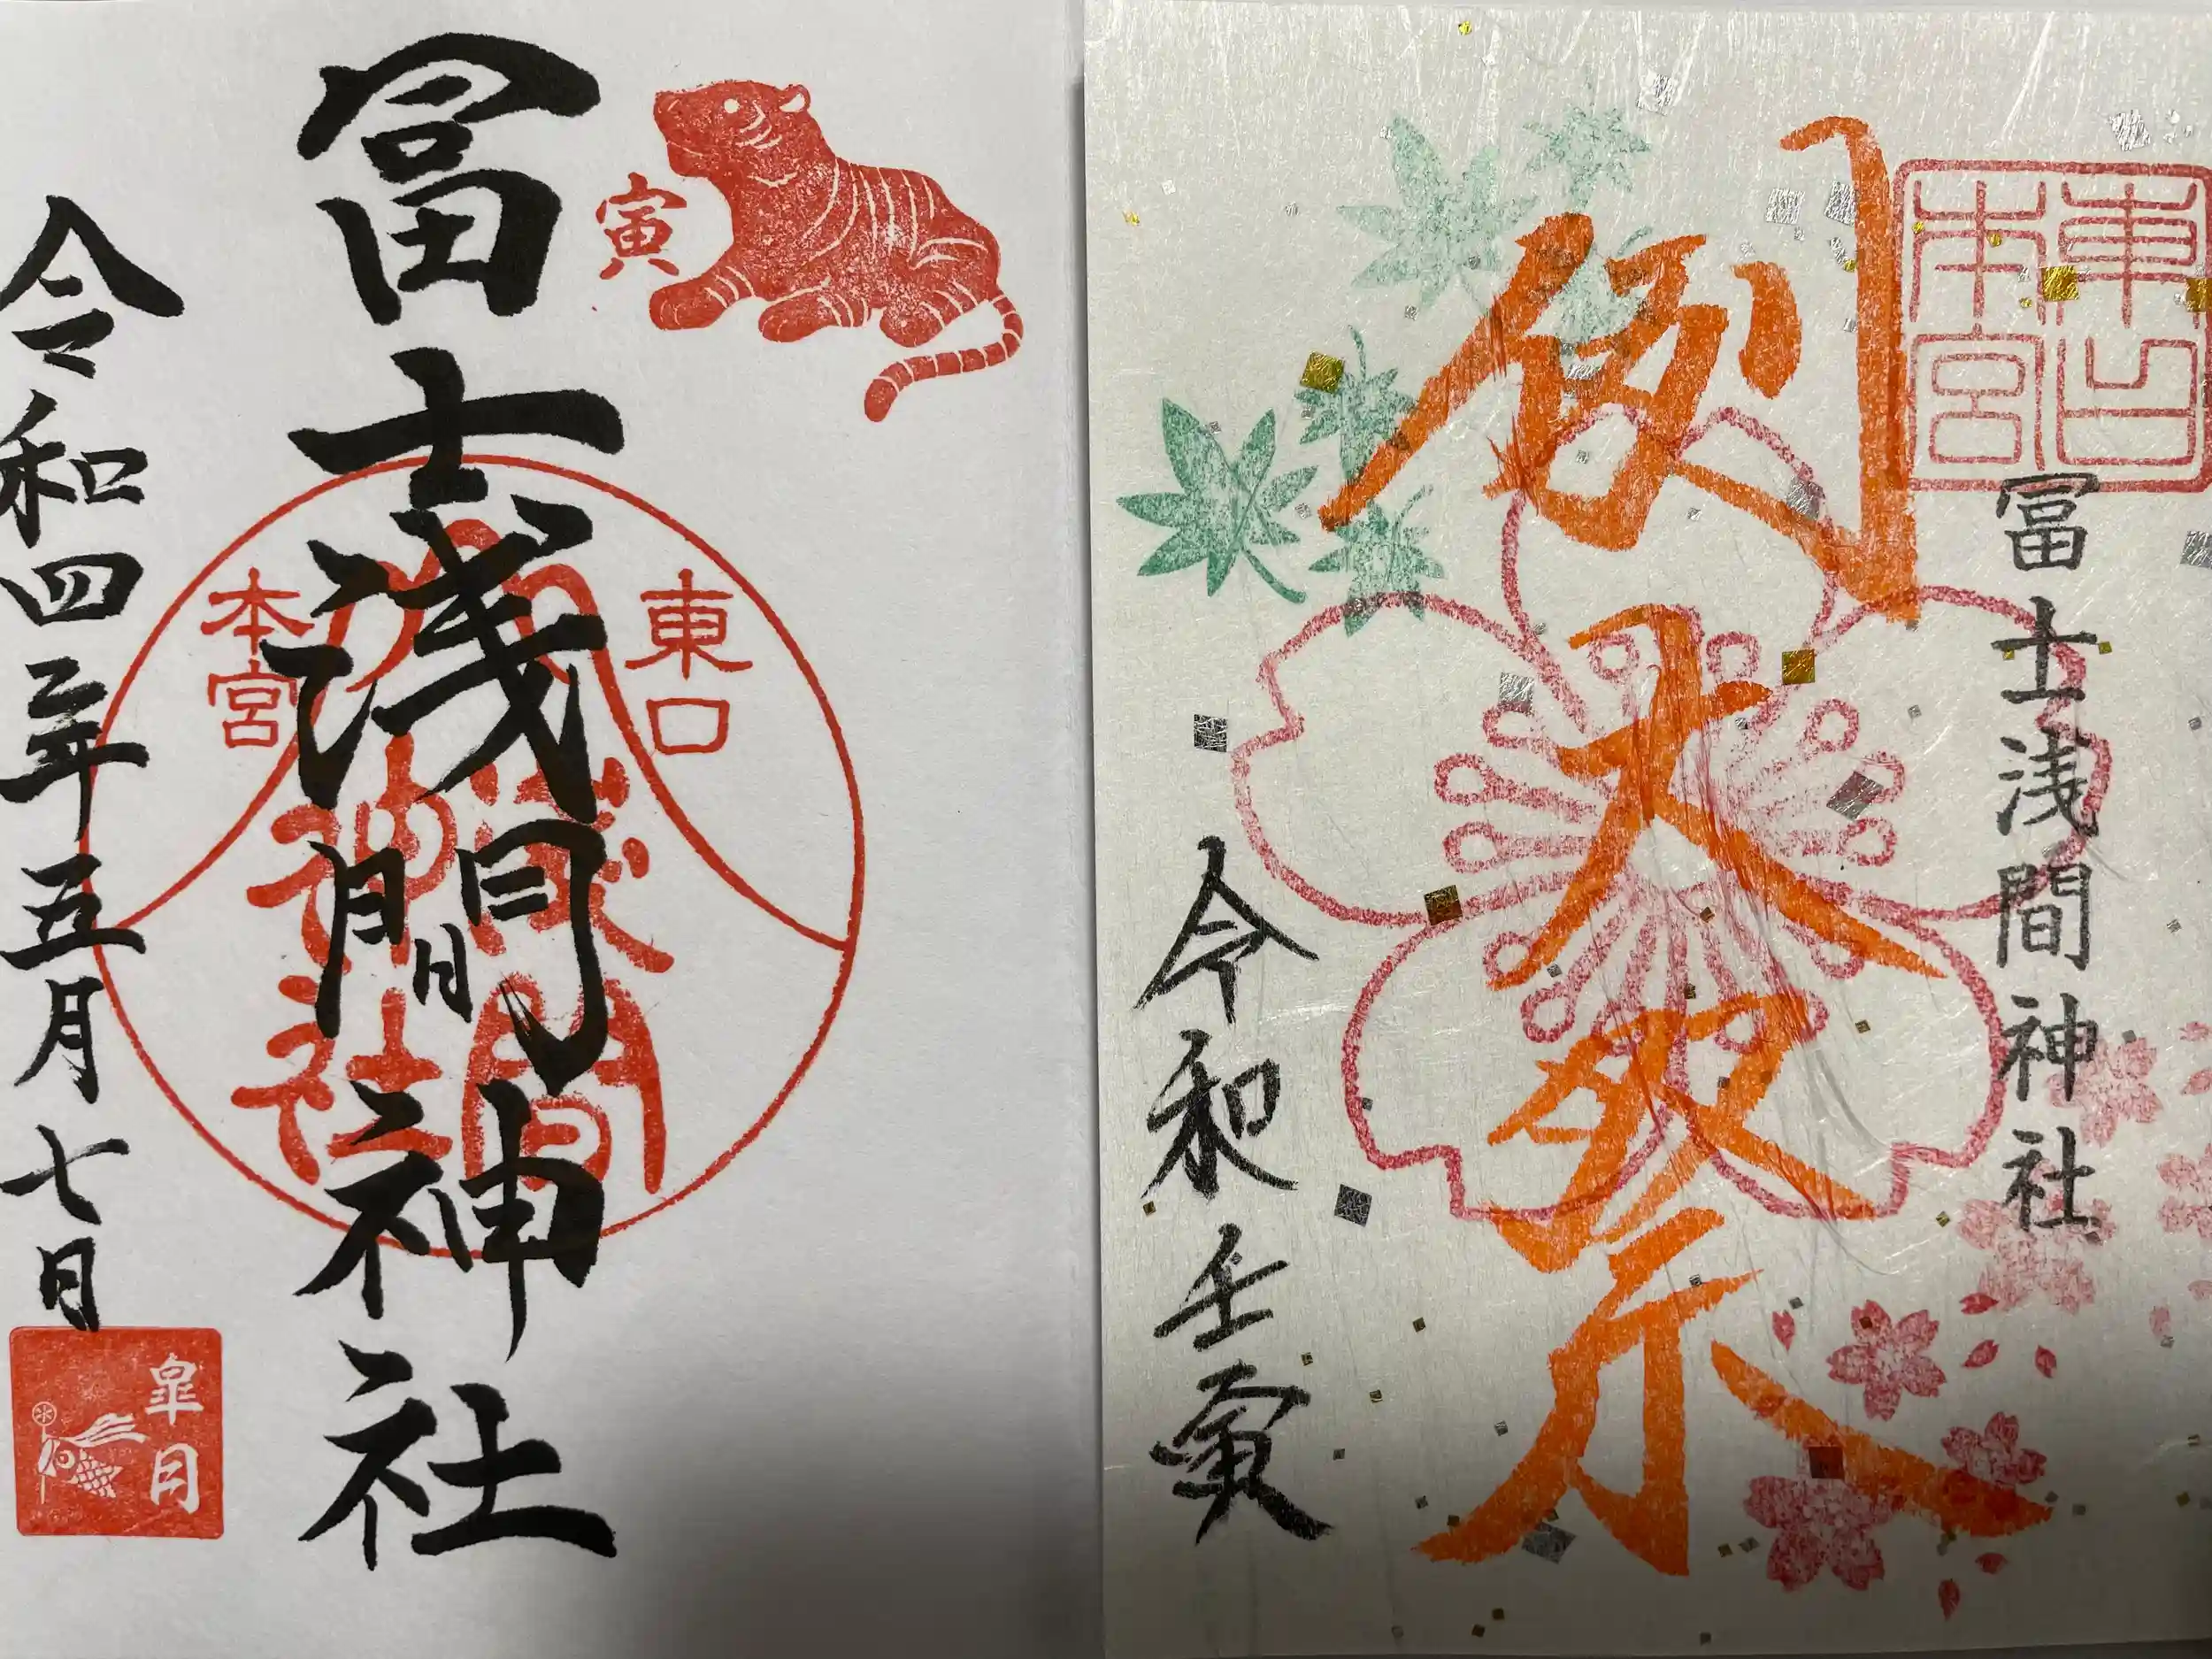 寅
冨士浅間神社
東口
本宮
浅間
神社
令和四年五月七日
皐月
東口
本宮
冨士浅間神社
例大祭
令和壬寅